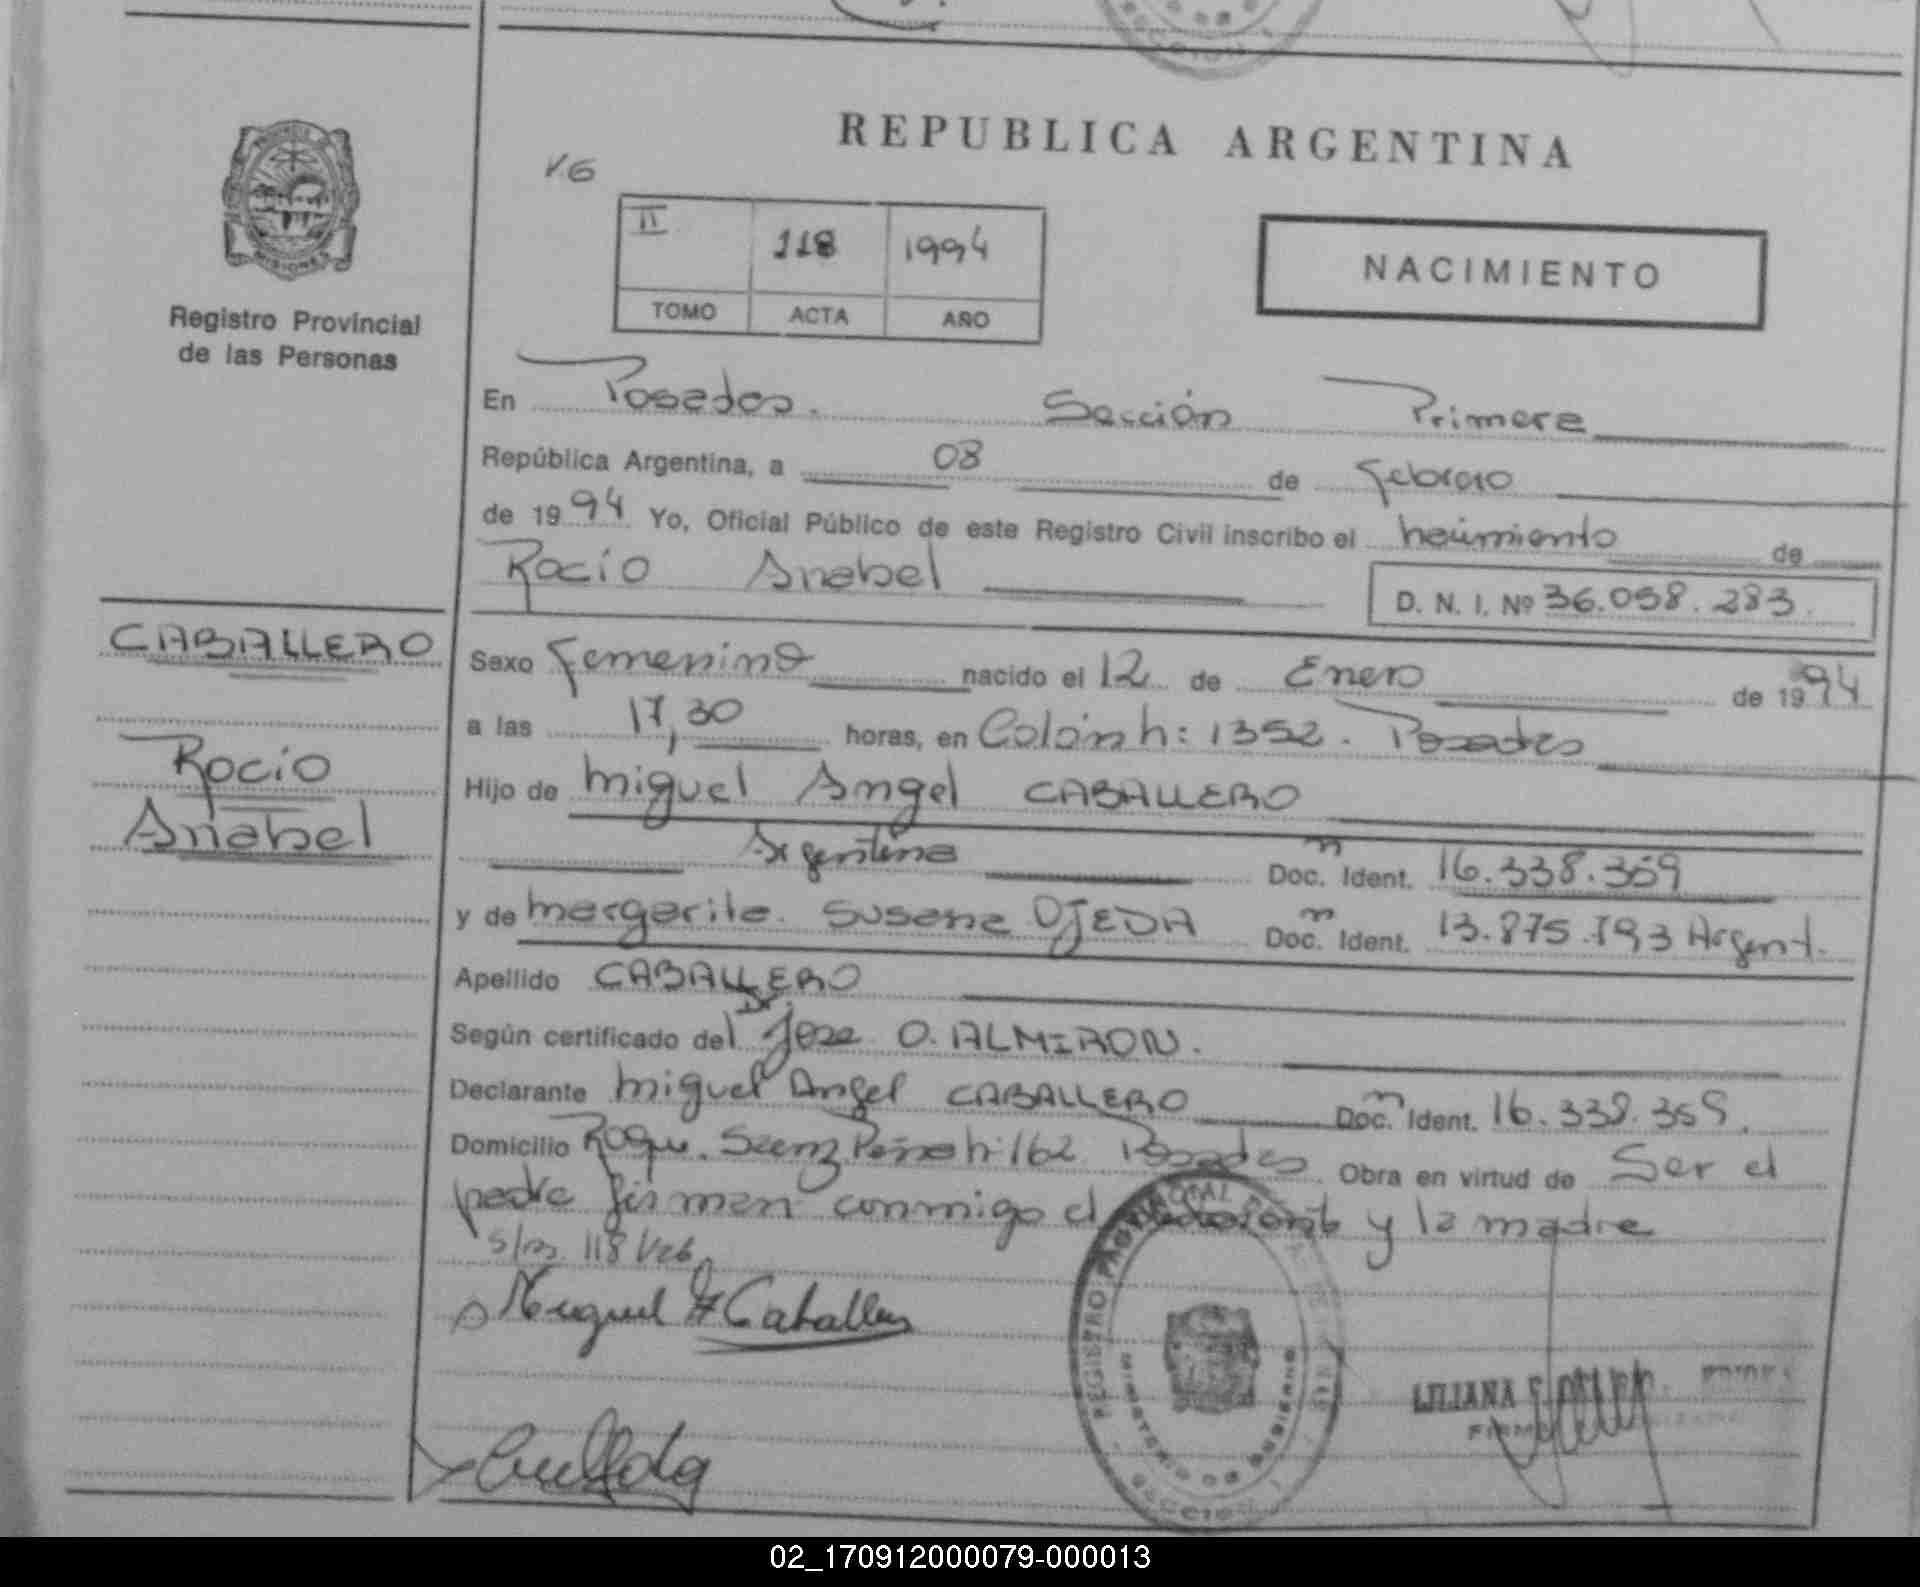 REPUBLICA ARGENTINA
MISIONES
Registro Provincial
de las Personas
II 118 1994
TOMO ACTA AÑO
NACIMIENTO
En Posadas. Sección Primera
República Argentina, a 08 de Febrero
de 1994 Yo, Oficial Público de este Registro Civil inscribo el nacimiento de
Rocío Anabel
D. N. I. Nº 36.058.283.
CABALLERO
Rocio
Anabel
Sexo Femenino nacido el 12 de Enero de 1994
a las 17,30 horas, en Colón n: 1352. Posadas
Hijo de Miguel Angel CABALLERO
Argentina Doc. Ident. 16.338.359
y de Margarita Susana OJEDA Doc. Ident. 13.875.793 Argent.
Apellido CABALLERO
Según certificado del Dr. Jose O. ALMIRON.
Declarante Miguel Angel CABALLERO Doc. Ident. 16.338.359.
Domicilio Roque Saenz Peña n: 162 Posadas Obra en virtud de Ser el
padre firman conmigo el y la madre
s/m. 118
Miguel A Caballero
LILIANA
02_170912000079-000013